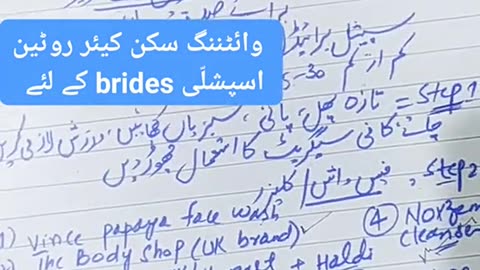 برائے صدف
وائٹننگ سکن کیئر روٹین
اسپشلّی brides کے لئے
سپیشل برائیڈ
کم از کم 30-15
Step 1 = تازہ پھل، پانی، سبزیاں کھائیں، ورزش لازمی کریں
چائے، کافی سگریٹ کا استعمال چھوڑ دیں
Step 2, فیس واش / کلینزر
1) Vince papaya face wash
The Body Shop (UK brand)
4 Noxzem
Cleanser
+ Haldi